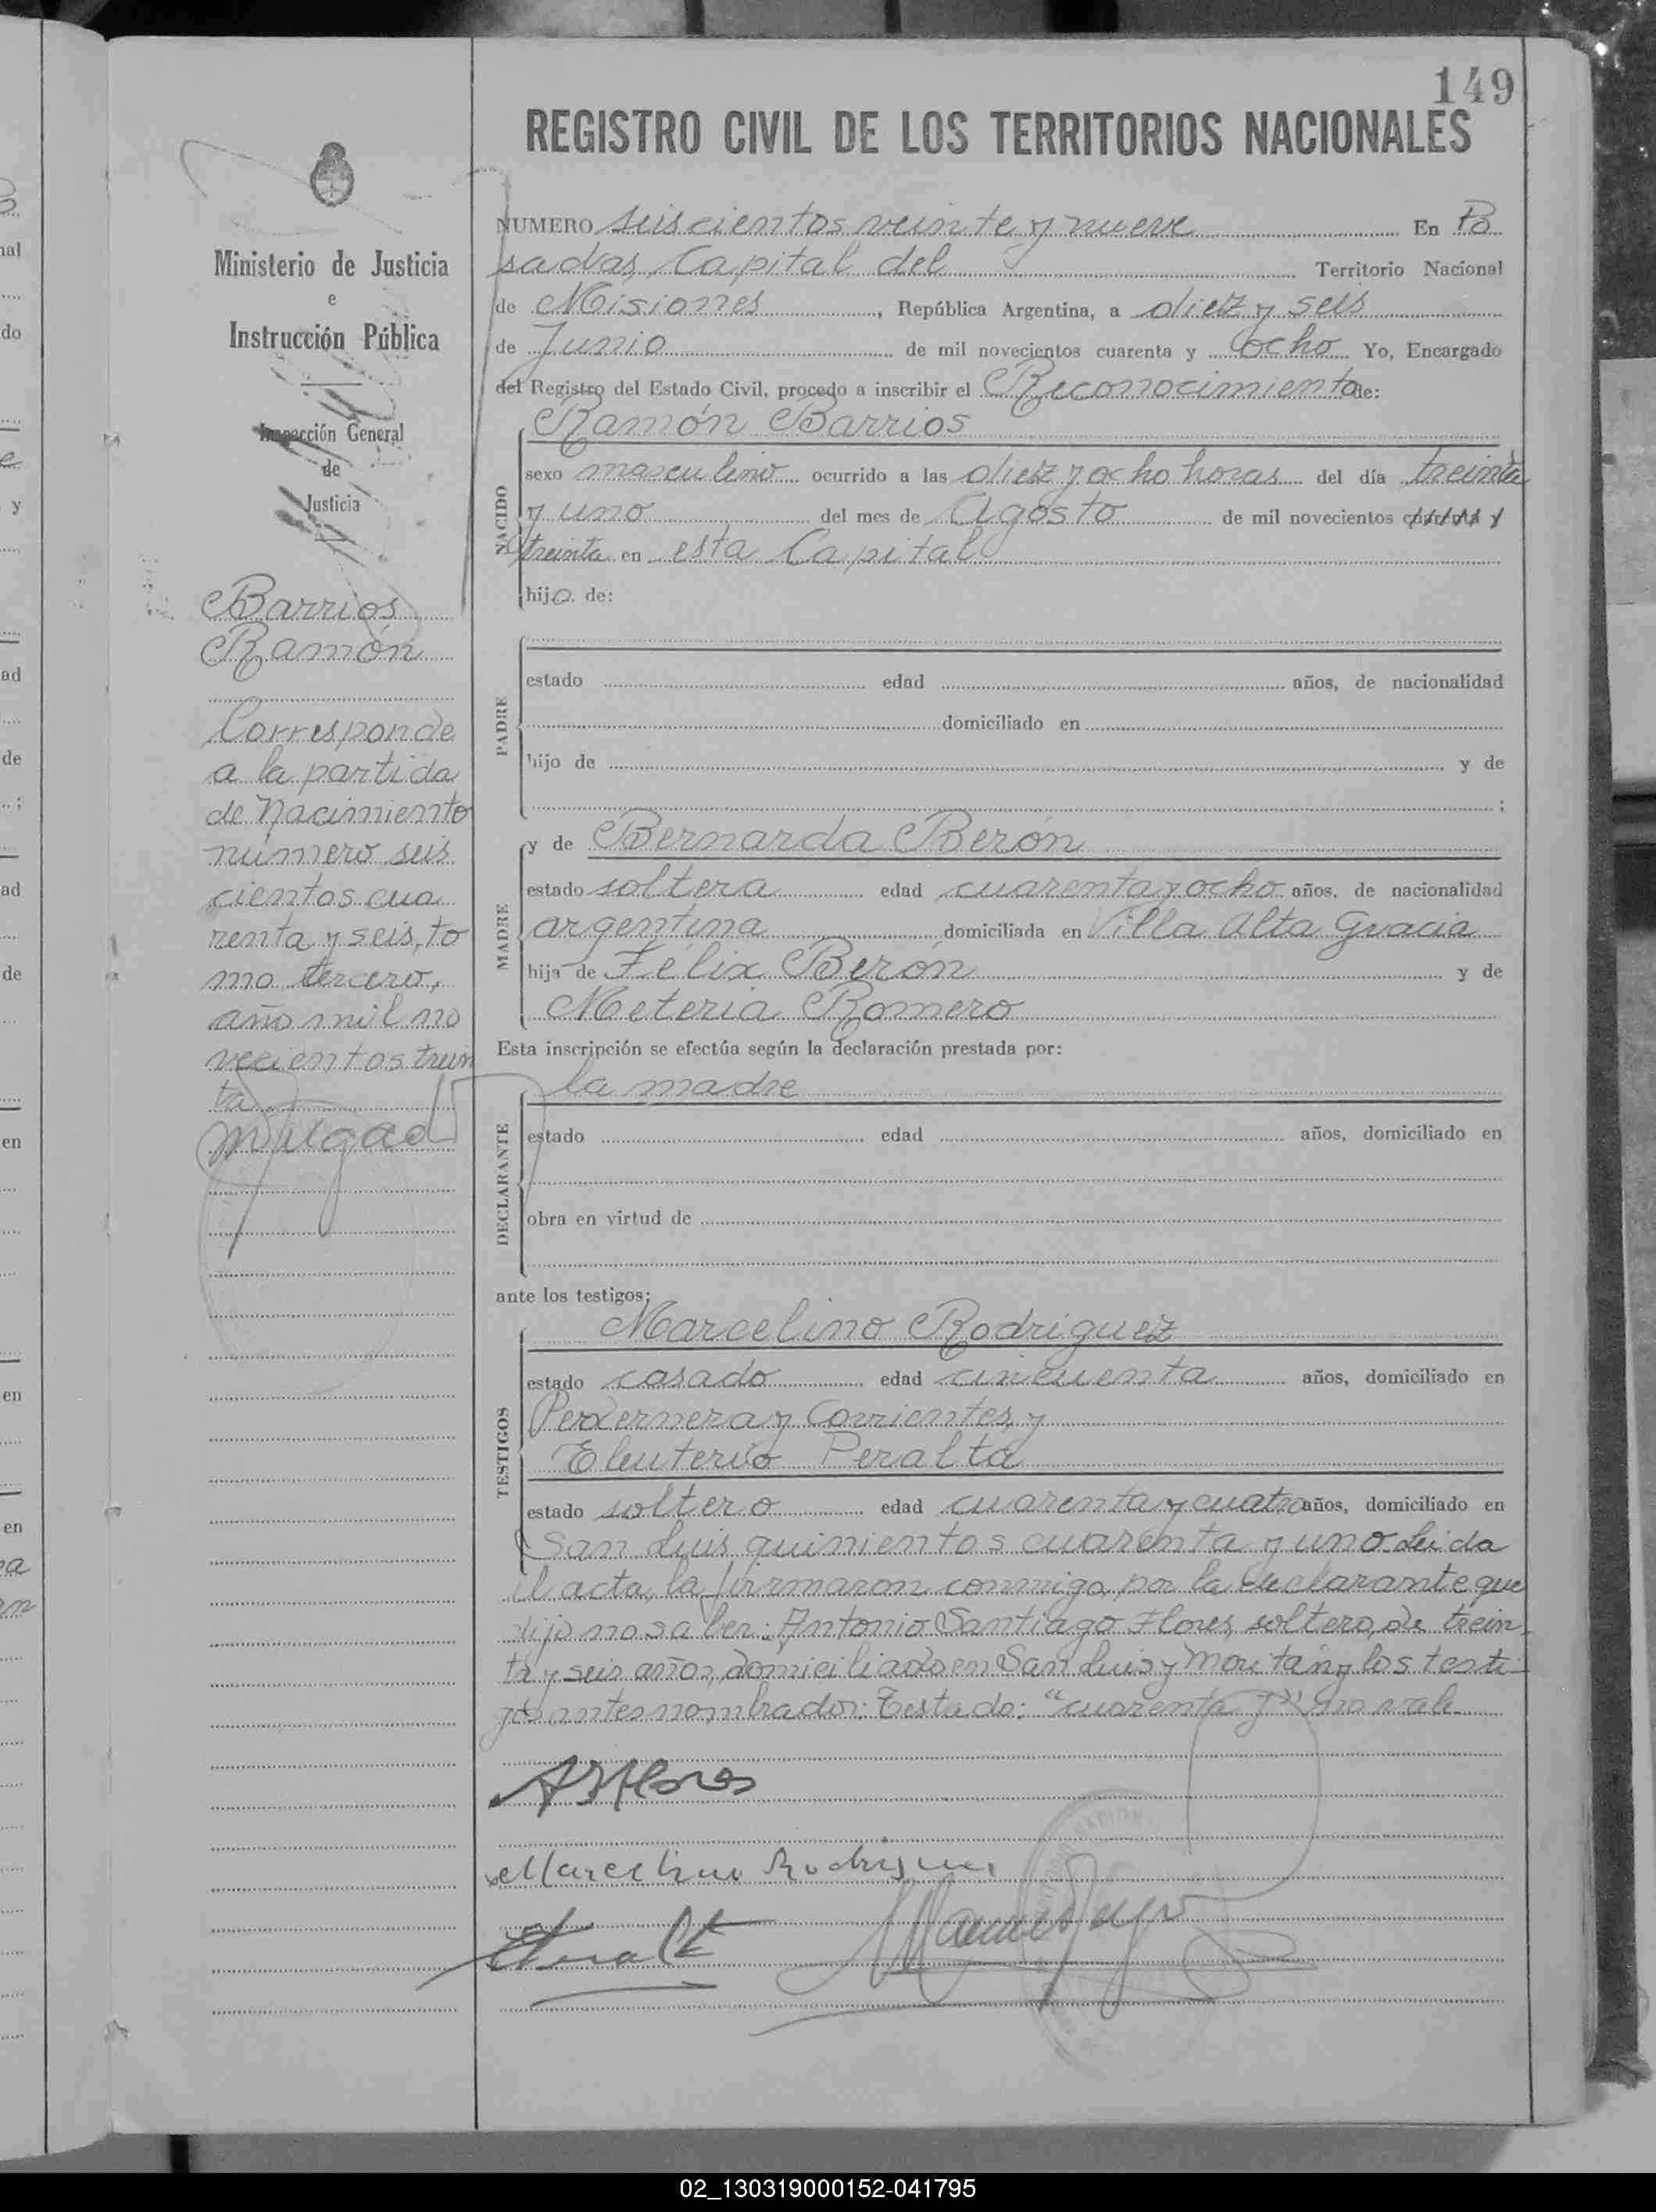 149
REGISTRO CIVIL DE LOS TERRITORIOS NACIONALES
Ministerio de Justicia
e
Instrucción Pública
Inspección General
de
Justicia
Barrios
Ramón
Corresponde
a la partida
de Nacimiento
número seis
cientos cua
renta y seis, to
mo tercero,
año mil no
vecientos trein
ta
NUMERO seiscientos veinte y nueve En Po
sadas, Capital del Territorio Nacional
de Misiones, República Argentina, a diez y seis
de Junio de mil novecientos cuarenta y ocho Yo, Encargado
del Registro del Estado Civil, procedo a inscribir el Reconocimiento de:
NACIDO
Ramón Barrios
sexo masculino ocurrido a las diez y ocho horas del día treinta
y uno del mes de Agosto de mil novecientos cuarenta y
treinta en esta Capital
hijo de:
PADRE
estado edad años, de nacionalidad
domiciliado en
hijo de y de
;
MADRE
y de Bernarda Berón
estado soltera edad cuarenta y ocho años, de nacionalidad
argentina domiciliada en Villa Alta Gracia
hija de Félix Berón y de
Meteria Romero
Esta inscripción se efectúa según la declaración prestada por:
DECLARANTE
la madre
estado edad años, domiciliado en
obra en virtud de
ante los testigos:
TESTIGOS
Marcelino Rodriguez
estado casado edad cincuenta años, domiciliado en
Pedernera y Corrientes, y
Eleuterio Peralta
estado soltero edad cuarenta y cuatro años, domiciliado en
San Luis quinientos cuarenta y uno Leida
el acta, la firmaron conmigo, por la declarante que
dijo no saber: Antonio Santiago Flores, soltero, de trein
ta y seis años, domiciliado en San Luis y y los testi
gos antes nombrados: Testado: "cuarenta y" no vale
ASFlores
Marcelino Rodriguez
02_130319000152-041795